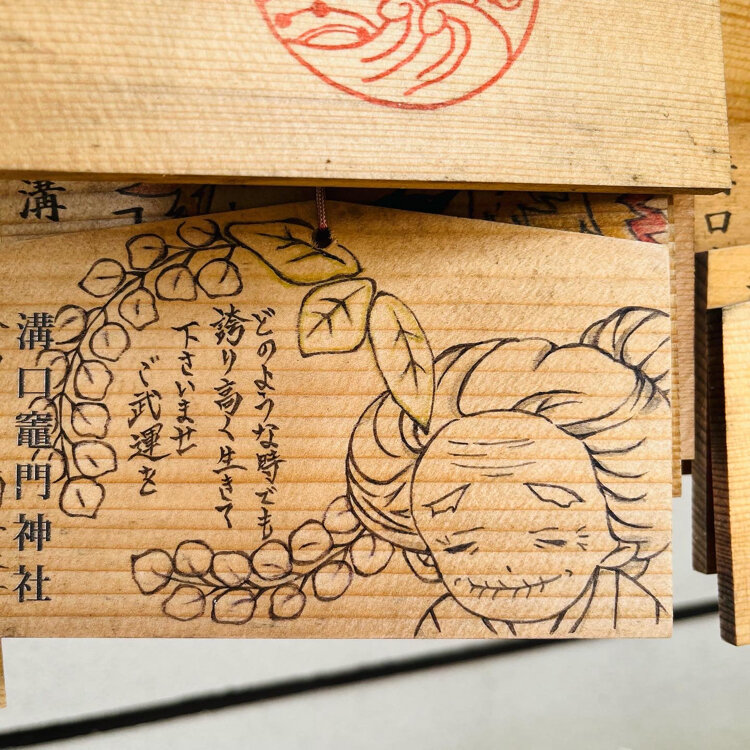 どのような時でも
誇り高く生きて
下さいませ
ご武運を
溝口竈門神社
溝
口